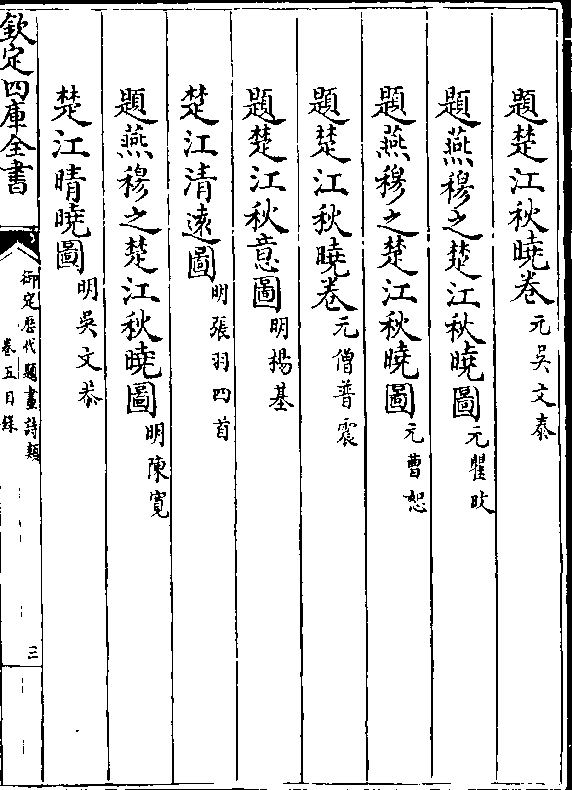 題楚江秋曉卷元吳文泰
題燕穆之楚江秋曉圖元瞿旼
題燕穆之楚江秋曉圖元曹恕
題楚江秋曉卷元僧普震
題楚江秋意圖明楊基
楚江清逺圖明張羽四首
題燕穆之楚江秋曉圖明陳寛
楚江晴曉圖明吳文恭
欽定四庫全書
御定歴代題畫詩類
卷五目錄
三